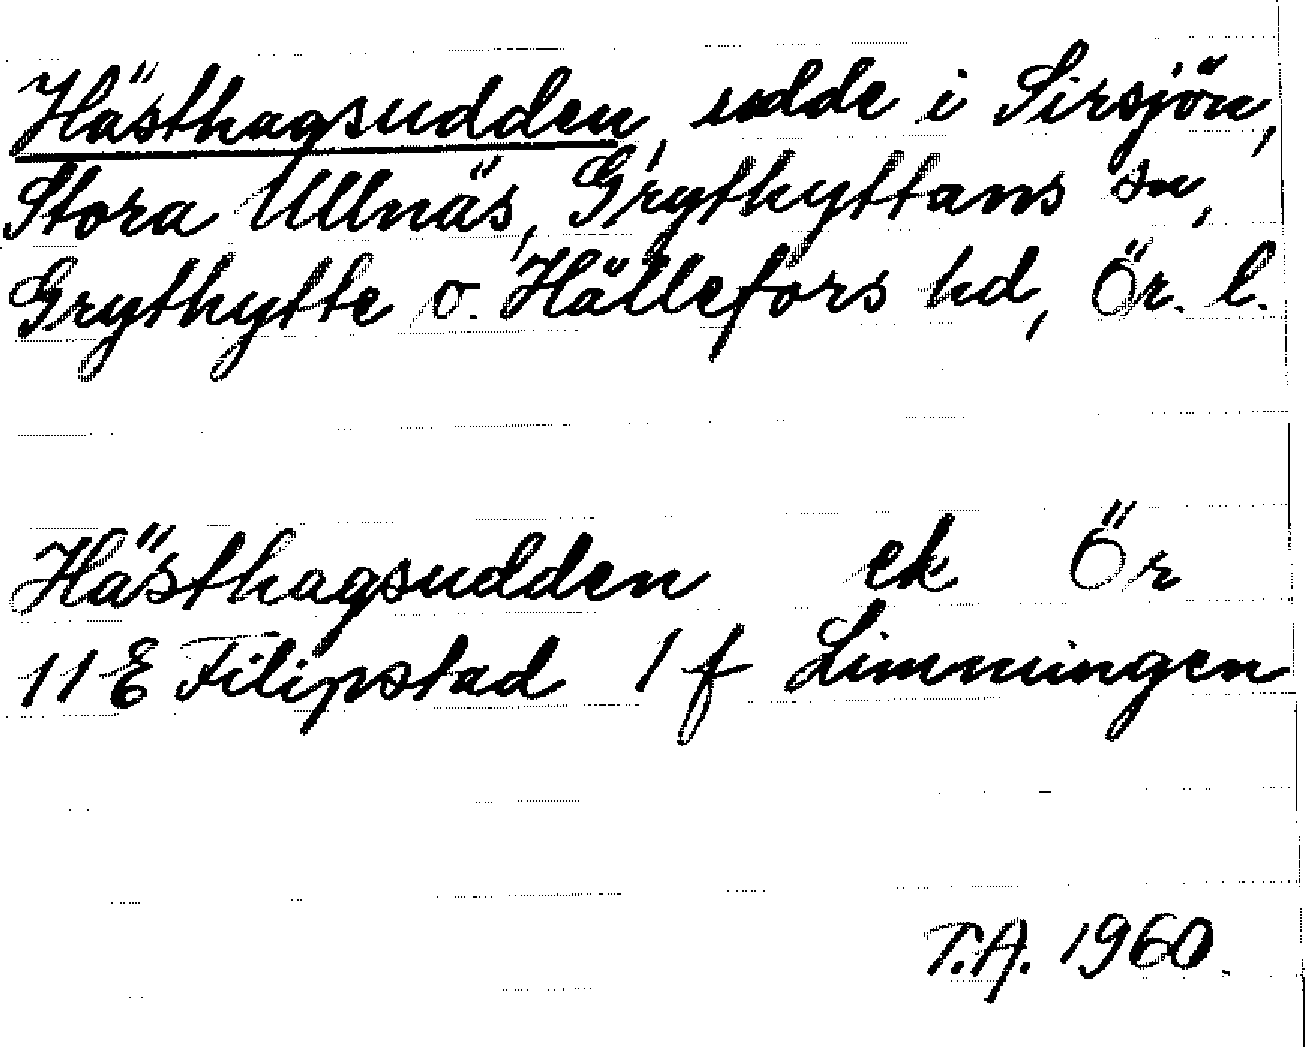 Hästhagsudden, udde i Sirsjön,
Stora Ullnäs, Grythyttans sn,
Grythytte o. Hällefors hd, Ör. l.
Hästhagsudden ek Ör
11 E Filipstad 1 f Limmingen
T.A. 1960.